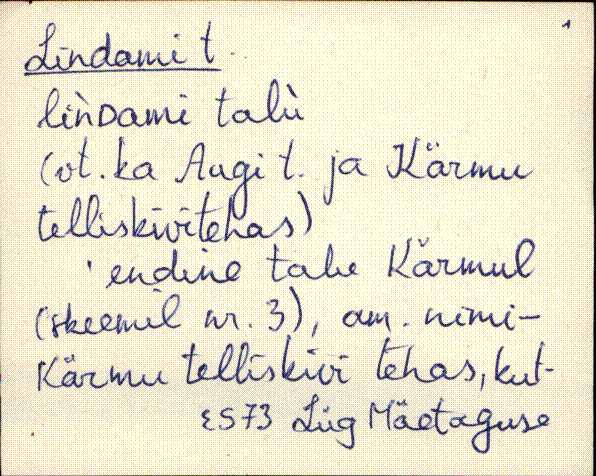 1
Lindami t.
lìnᴅami talù
(vt. ka Augi t. ja Kärmu
telliskivitehas)
endine talu Kärmul
(skeemil nr. 3), am. nimi-
Kärmu telliskivi tehas, kut-
ES73 Lüg Mäetaguse